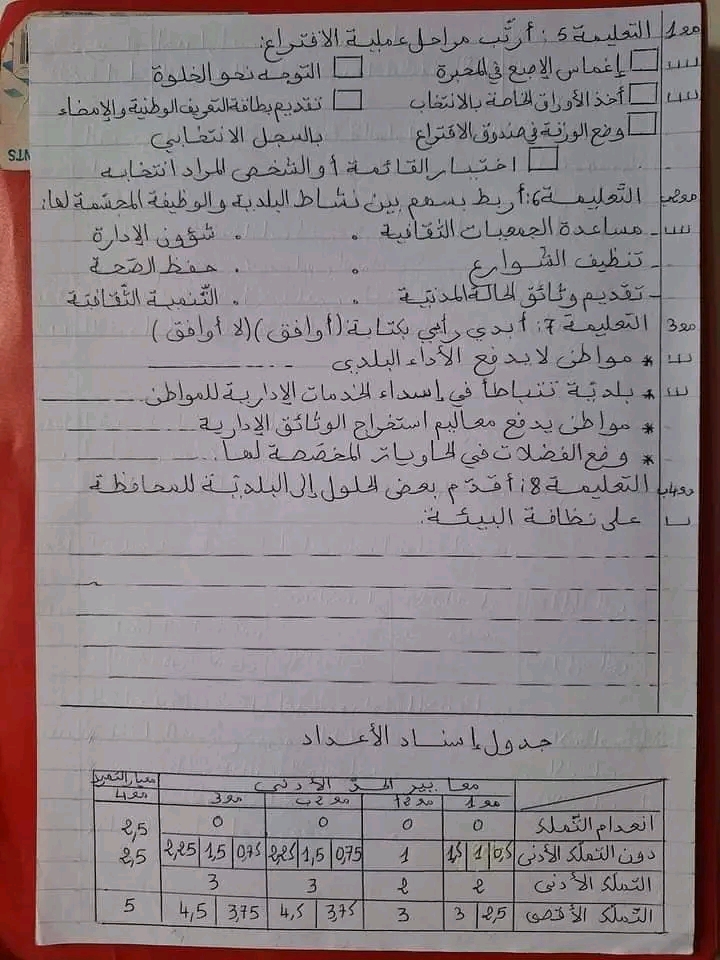 مع1 التعليمة 5: أرتّب مراحل عملية الاقتراع:
إغماس الإصبع في المحبرة التوجه نحو الخلوة
أخذ الأوراق الخاصة بالانتخاب تقديم بطاقة التعريف الوطنية والإمضاء
وضع الورقة في صندوق الاقتراع بالسجل الانتخابي
اختيار القائمة أو الشخص المراد انتخابه
مع2ب التّعليمة 6: أربط بسهم بين نشاط البلدية والوظيفة المجسّمة لها:
- مساعدة الجمعيات الثقافية . . شؤون الإدارة
- تنظيف الشوارع . . حفظ الصّحة
- تقديم وثائق الحالة المدنيّة . . التّنمية الثّقافيّة
مع3 التعليمة 7: أبدي رأيي بكتابة (أوافق) (لا أوافق)
* مواطن لا يدفع الأداء البلدي
* بلديّة تتباطأ في إسداء الخدمات الإدارية للمواطن
* مواطن يدفع معاليم استخراج الوثائق الإدارية
* وضع الفضلات في الحاويات المخصّصة لها
مع4ب التعليمة 8: أقدّم بعض الحلول إلى البلديّة للمحافظة
على نظافة البيئة:
جدول إسناد الأعداد
معايير الحدّ الأدنى معيار التميز
مع1 مع2أ مع2ب مع3 مع4
انعدام التّملك 0 0 0 0 2,5
دون التملّك الأدنى 0,5 1 1,5 1 0,75 1,5 2,25 0,75 1,5 2,25 2,5
التملّك الأدنى 2 2 3 3
التّملّك الأقصى 2,5 3 3 3,75 4,5 3,75 4,5 5